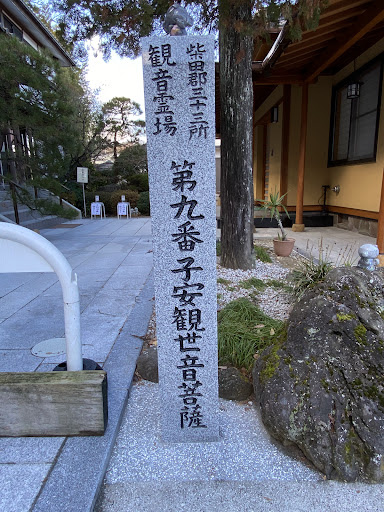 柴田郡三十三所
観音霊場
第九番子安観世音菩薩